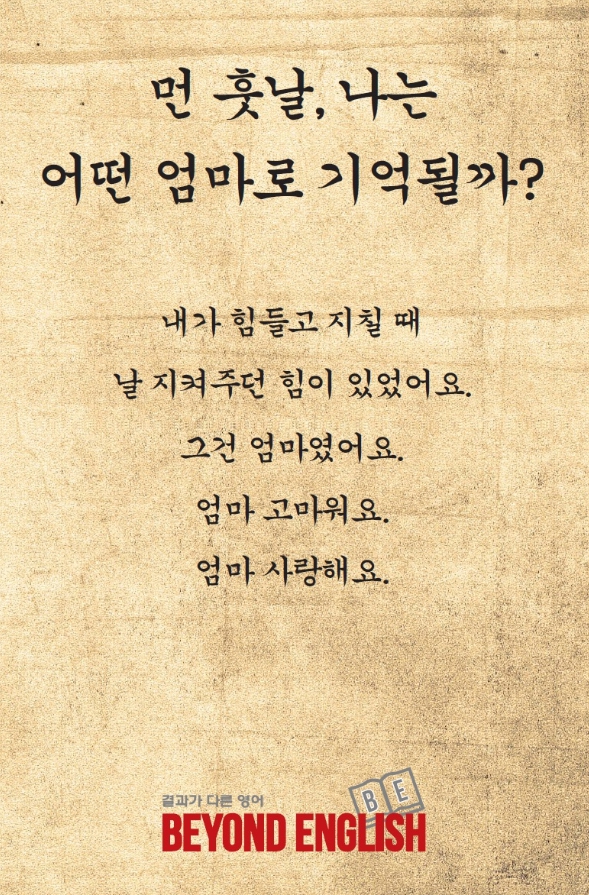 먼 훗날, 나는
어떤 엄마로 기억될까?
내가 힘들고 지칠 때
날 지켜주던 힘이 있었어요.
그건 엄마였어요.
엄마 고마워요.
엄마 사랑해요.
결과가 다른 영어
BE
BEYOND ENGLISH